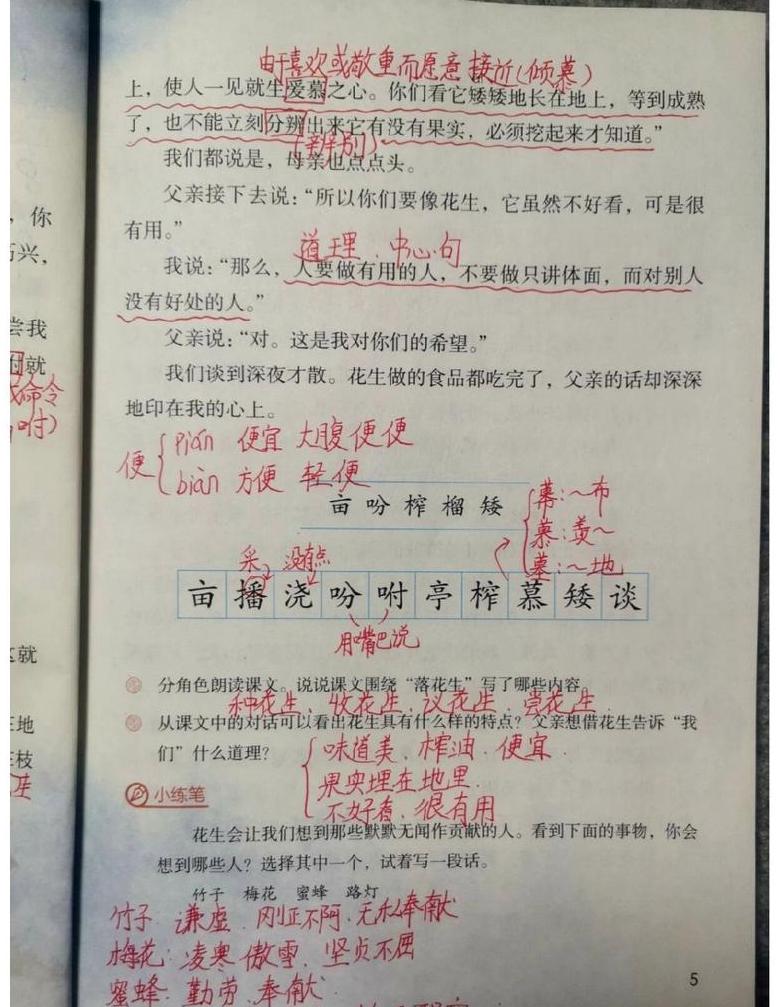 由于喜欢或敬重而愿意接近(倾慕)
上，使人一见就生爱慕之心。你们看它矮矮地长在地上，等到成熟
了，也不能立刻分辨出来它有没有果实，必须挖起来才知道。”
(辨别)
我们都说是，母亲也点点头。
父亲接下去说：“所以你们要像花生，它虽然不好看，可是很
有用。”
道理、中心句
我说：“那么，人要做有用的人，不要做只讲体面，而对别人
没有好处的人。”
父亲说：“对。这是我对你们的希望。”
我们谈到深夜才散。花生做的食品都吃完了，父亲的话却深深
地印在我的心上。
便
pián 便宜 大腹便便
biàn 方便 轻便
亩 吩 榨 榴 矮
幕:~布
慕:羡~
墓:~地
采 没有点
亩 播 浇 吩 咐 亭 榨 慕 矮 谈
用嘴巴说
分角色朗读课文。说说课文围绕“落花生”写了哪些内容。
种花生、收花生、议花生、尝花生
从课文中的对话可以看出花生具有什么样的特点？父亲想借花生告诉“我
们”什么道理？
味道美、榨油、便宜.
果实埋在地里.
不好看、很有用
小练笔
花生会让我们想到那些默默无闻作贡献的人。看到下面的事物，你会
想到哪些人？选择其中一个，试着写一段话。
竹子 梅花 蜜蜂 路灯
竹子:谦虚、刚正不阿、无私奉献
梅花:凌寒傲雪、坚贞不屈
蜜蜂:勤劳、奉献
5
，你
兴，
尝我
就
命令
咐)
就
地
枝